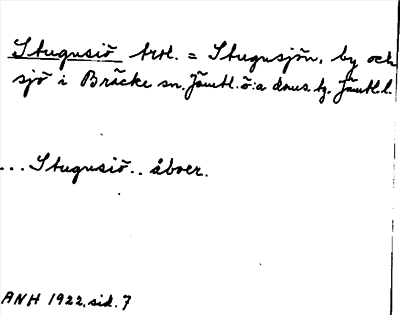 Stugusiö trol. = Stugusjön, by och
sjö i Bräcke sn. Jämtl. ö:a doms. tg. Jämtl l.
... Stugusiö .. åboer.
ANH 1922, sid. 7